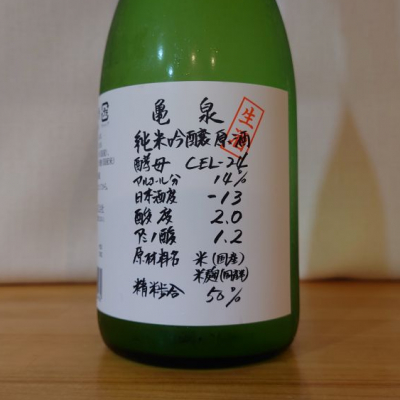 亀泉
生酒
純米吟醸原酒
酵母 CEL-24
アルコール分 14%
日本酒度 -13
酸度 2.0
アミノ酸 1.2
原材料名 米(国産)
米麹(国産米)
精米歩合 50%